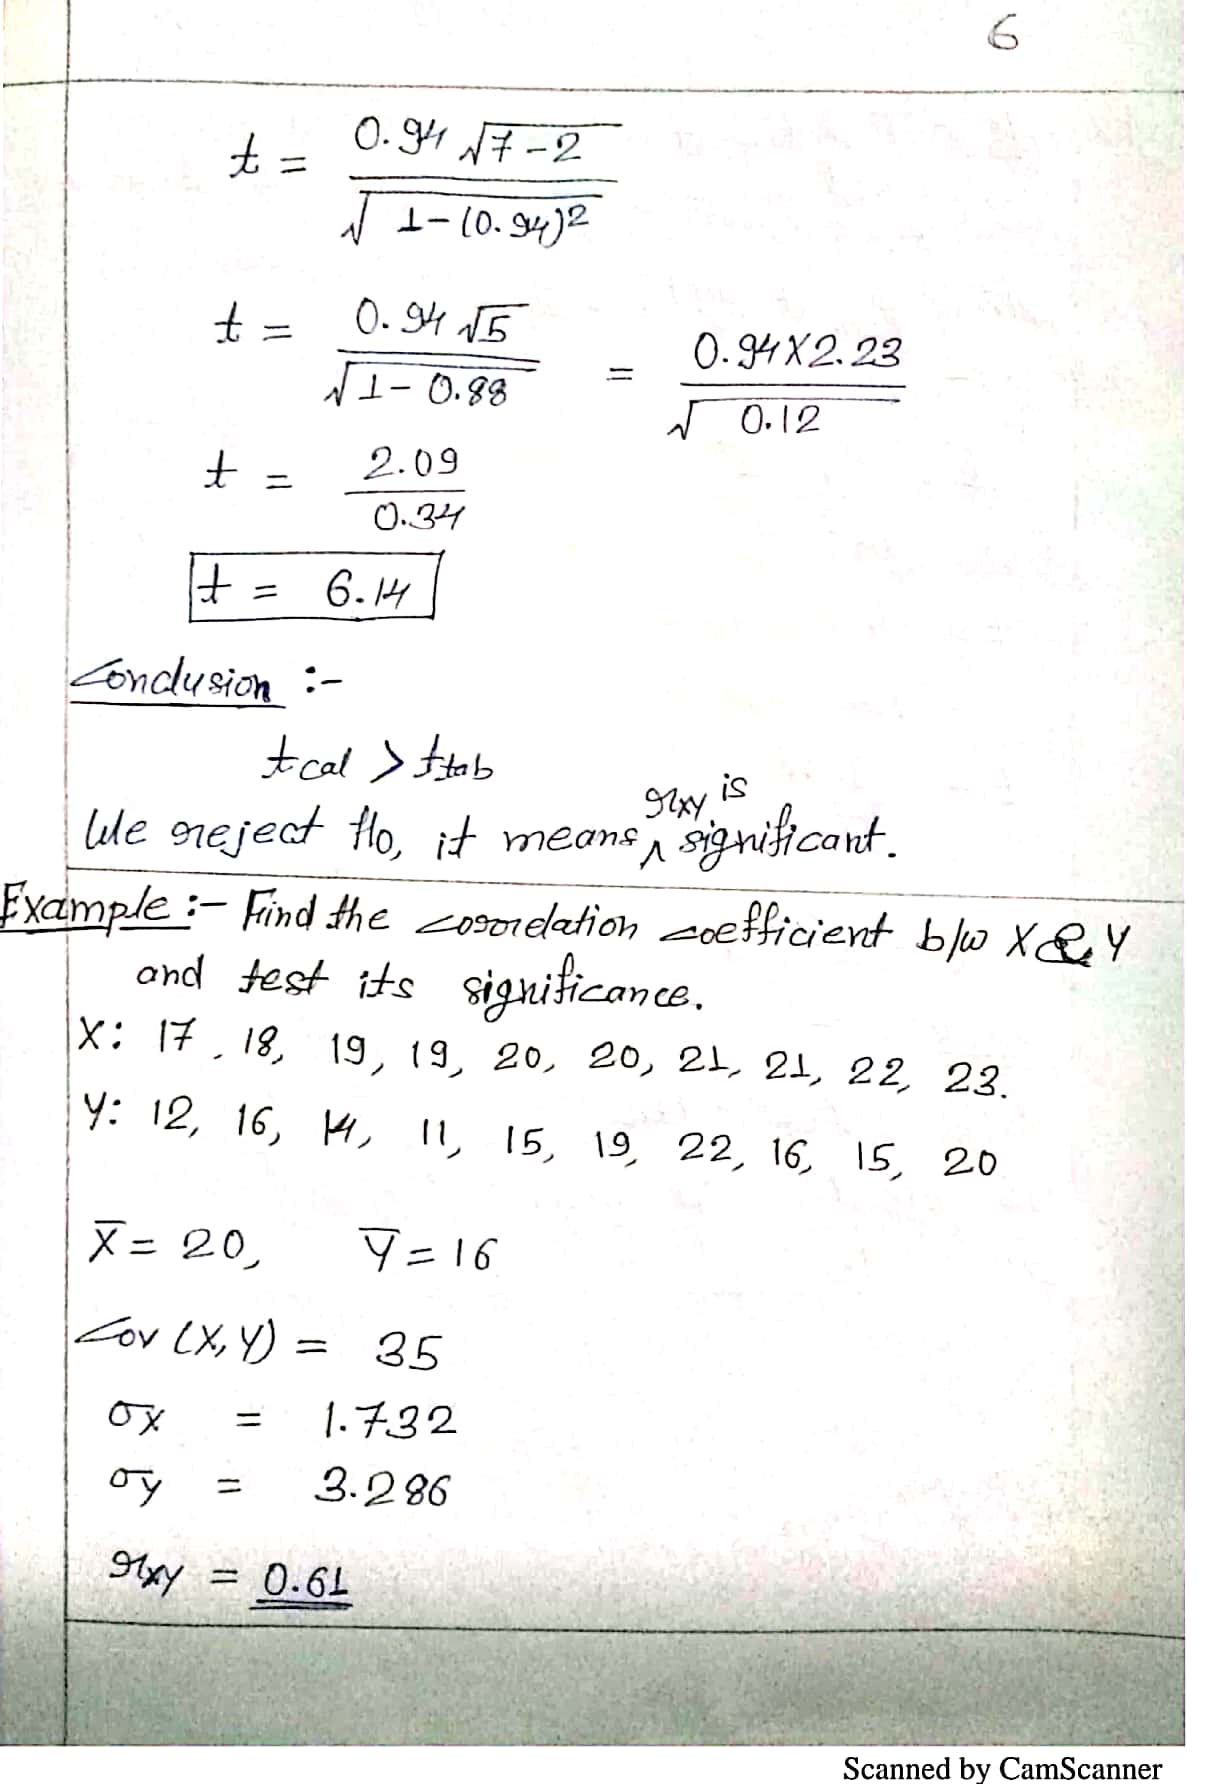 6
t = 0.94 √7-2 / √1-(0.94)2
t = 0.94 √5 / √1-0.88 = 0.94X2.23 / √0.12
t = 2.09 / 0.34
t = 6.14
Conclusion :-
tcal > ttab
rxy is
We reject Ho, it means ^ significant.
Example :- Find the correlation coefficient b/w X & Y
and test its significance.
X: 17, 18, 19, 19, 20, 20, 21, 21, 22, 23.
Y: 12, 16, 14, 11, 15, 19, 22, 16, 15, 20
X̅ = 20, Y̅ = 16
Cov (X, Y) = 35
σx = 1.732
σy = 3.286
rxy = 0.61
Scanned by CamScanner